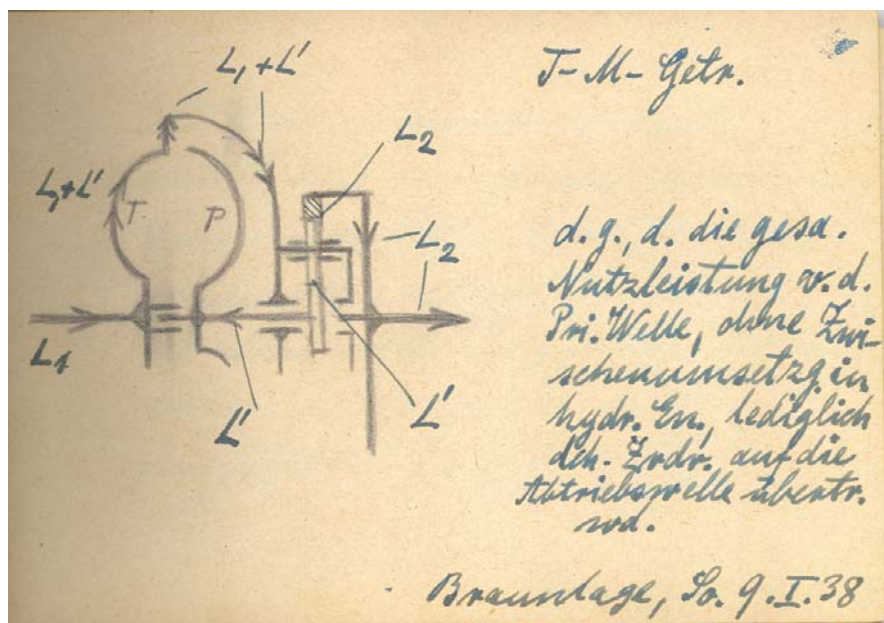 L₁+L'
T-M-Getr.
L₂
L₁+L'
T.
P
L₂
d. g., d. die gesa.
Nutzleistung v. d.
Pri. Welle, ohne Zwi-
schenumsetzg. in
hydr. En., lediglich
dch. Zrdr. auf die
Abtriebswelle übertr.
wd.
L₁
L'
L'
Braunlage, So. 9.I.38